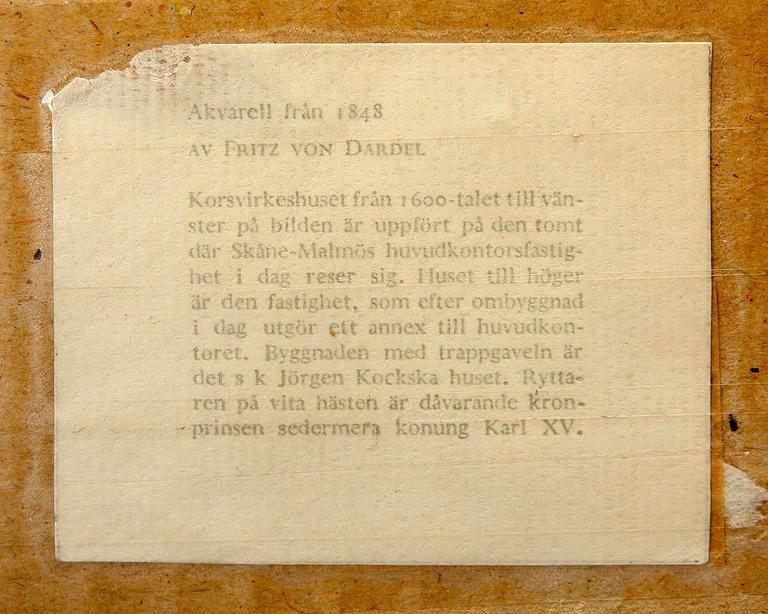 Akvarell från 1848
AV FRITZ VON DARDEL
Korsvirkeshuset från 1600-talet till vän-
ster på bilden är uppfört på den tomt
där Skåne-Malmös huvudkontorsfastig-
het i dag reser sig. Huset till höger
är den fastighet, som efter ombyggnad
i dag utgör ett annex till huvudkon-
toret. Byggnaden med trappgaveln är
det s k Jörgen Kockska huset. Rytta-
ren på vita hästen är dåvarande kron-
prinsen sedermera konung Karl XV.